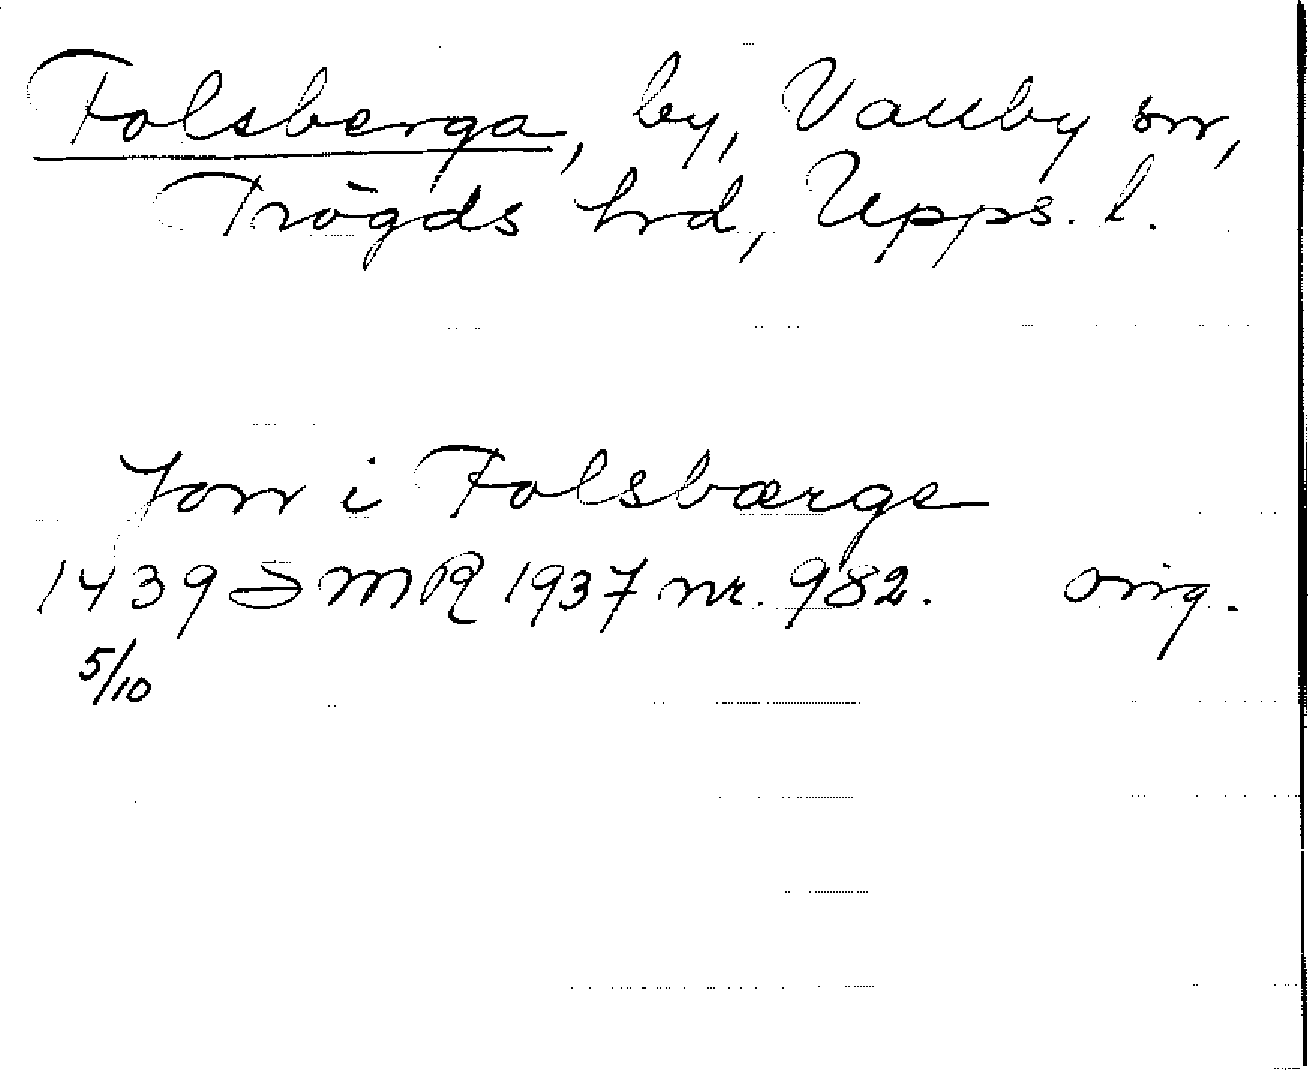 Folsberga, by, Vallby sn,
Trögds hrd, Upps. l.
Jon i Folsbærge
1439 SMR 1937 nr. 982. orig.
5/10